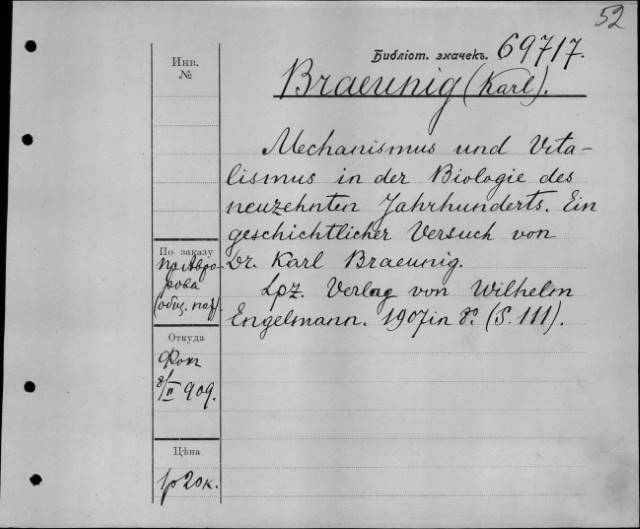 52
Библіот. значекъ. 69717.
Braeunig (Karl).
Инв.
№
Mechanismus und Vita-
lismus in der Biologie des
neuzehnten Jahrhunderts. Ein
geschichtlicher Versuch von
Dr. Karl Braeunig.
Lpz. Verlag von Wilhelm
Engelmann. 1907 in 8º. (S. 111).
По заказу
пр. Авро-
рова
(общ. пат)
Откуда
Фок
8/II 909.
Цѣна
1р 20к.